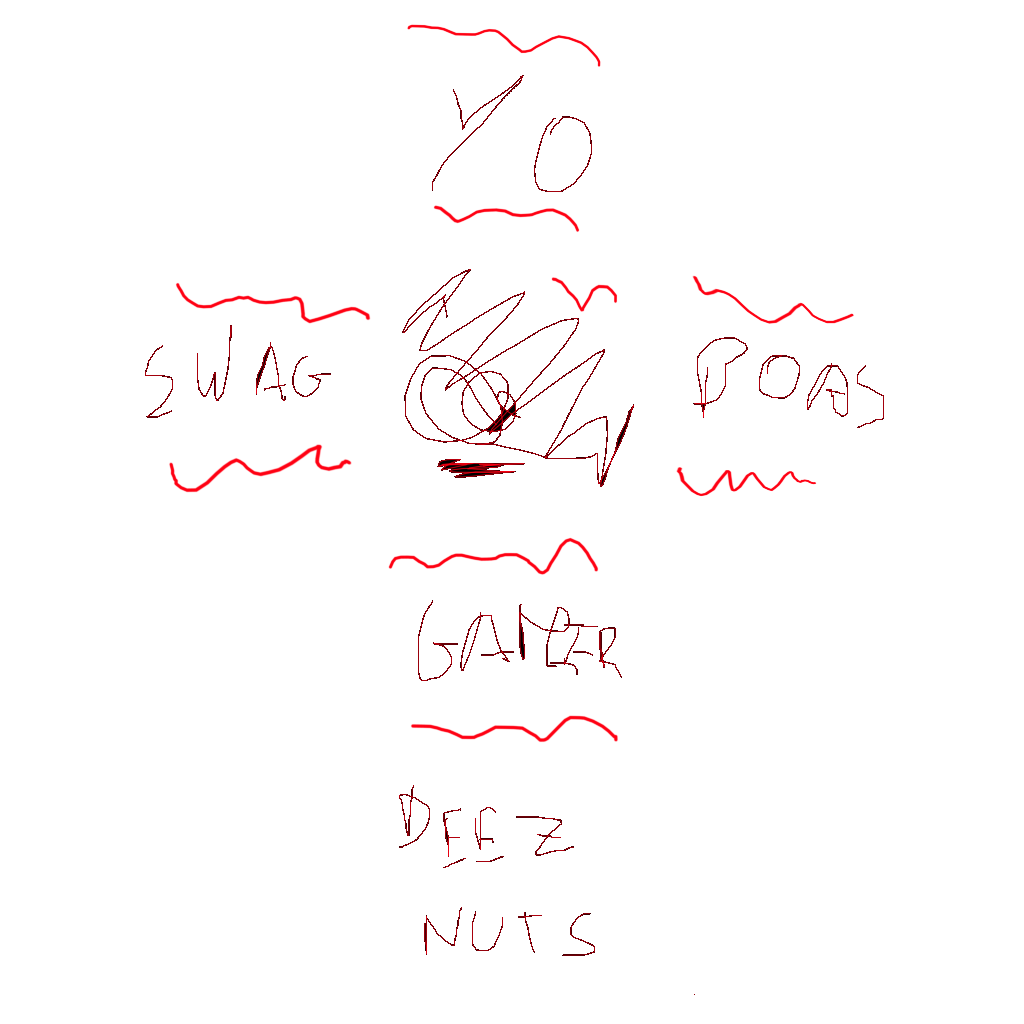 YO
SWAG BOAS
GAMER
DEEZ
NUTS